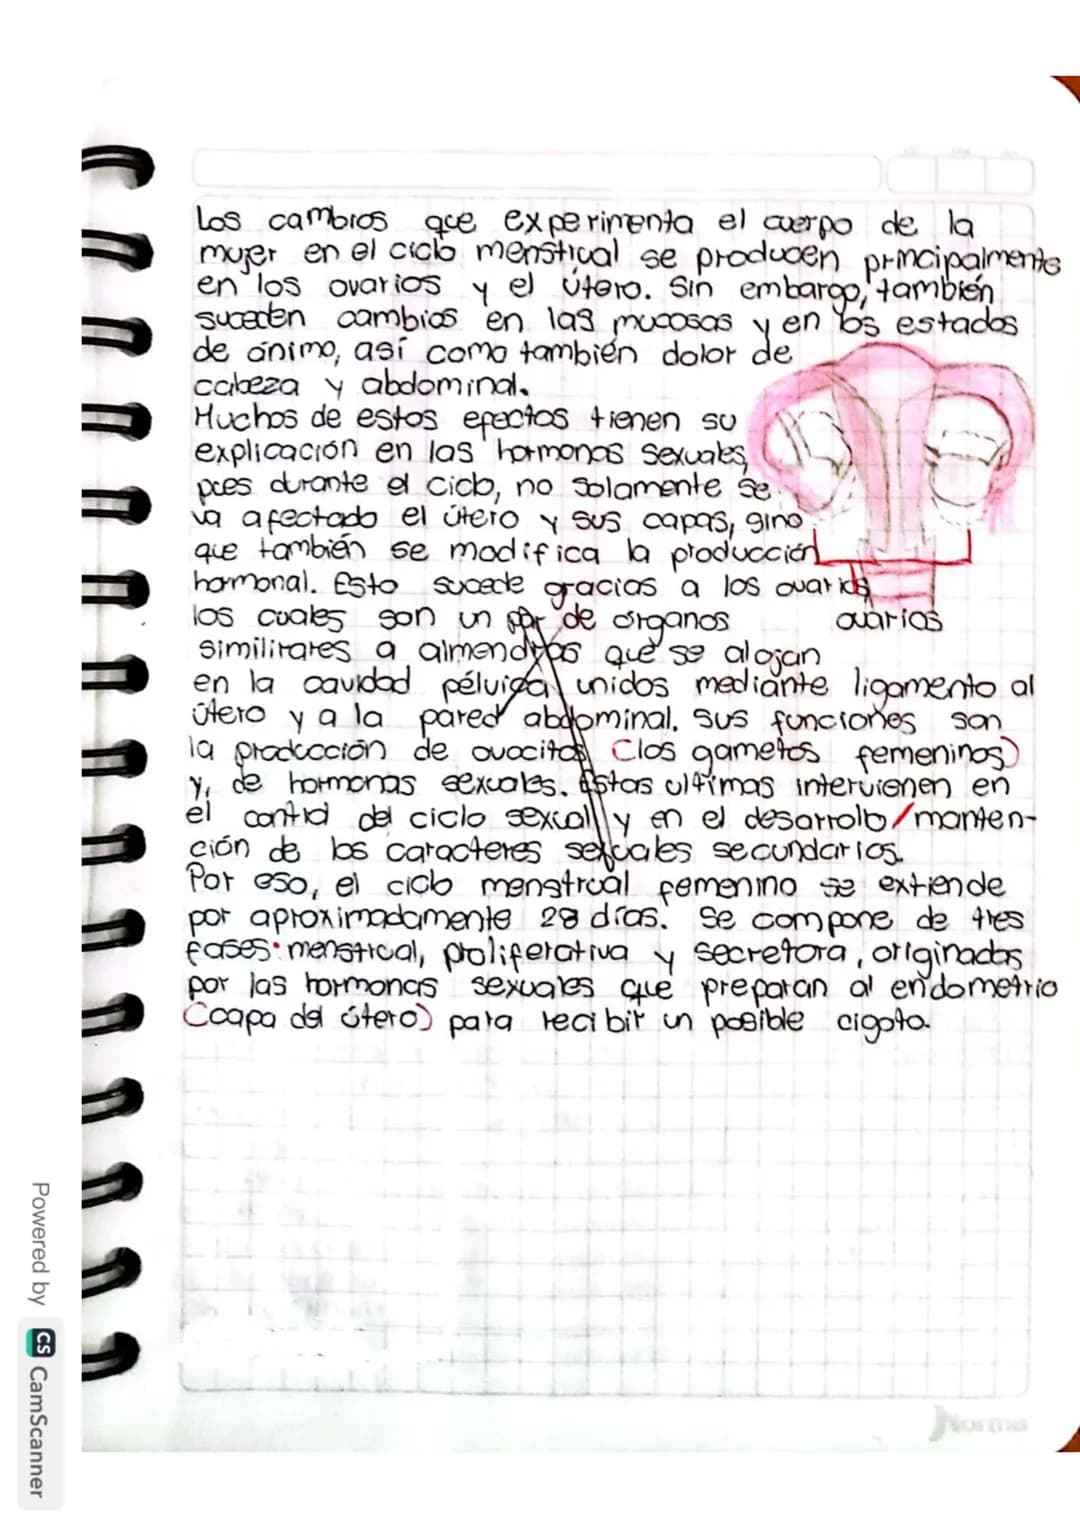 Los cambios que experimenta el cuerpo de la
mujer en el ciclo menstrual se producen principalmente
en los ovarios y el útero. Sin embargo, también
suceden cambios en las mucosas y en los estados
de ánimo, así como también dolor de
cabeza y abdominal.
Muchos de estos efectos tienen su
explicación en las hormonas sexuales,
pues durante el ciclo, no solamente se
va afectado el útero y sus capas, sino
que también se modifica la producción
hormonal. Esto sucede gracias a los ovarios
los cuales son un par de órganos
ovarios
similirares a almendras que se alojan
en la cavidad pélvica unidos mediante ligamento al
útero y a la pared abdominal. Sus funciones son
la producción de ovocitos (los gametos femeninos)
y, de hormonas sexuales. Estas ultimas intervienen en
el contrid del ciclo sexual y en el desarrollo/manten-
ción de los caracteres sexuales secundarios.
Por eso, el ciclo menstrual femenino se extiende
por aproximadamente 28 días. Se compone de tres
fases: menstrual, proliferativa y secretora, originadas
por las hormonas sexuales que preparan al endometrio
(capa del útero) para recibir un posible cigoto.
Norma
Powered by CS CamScanner